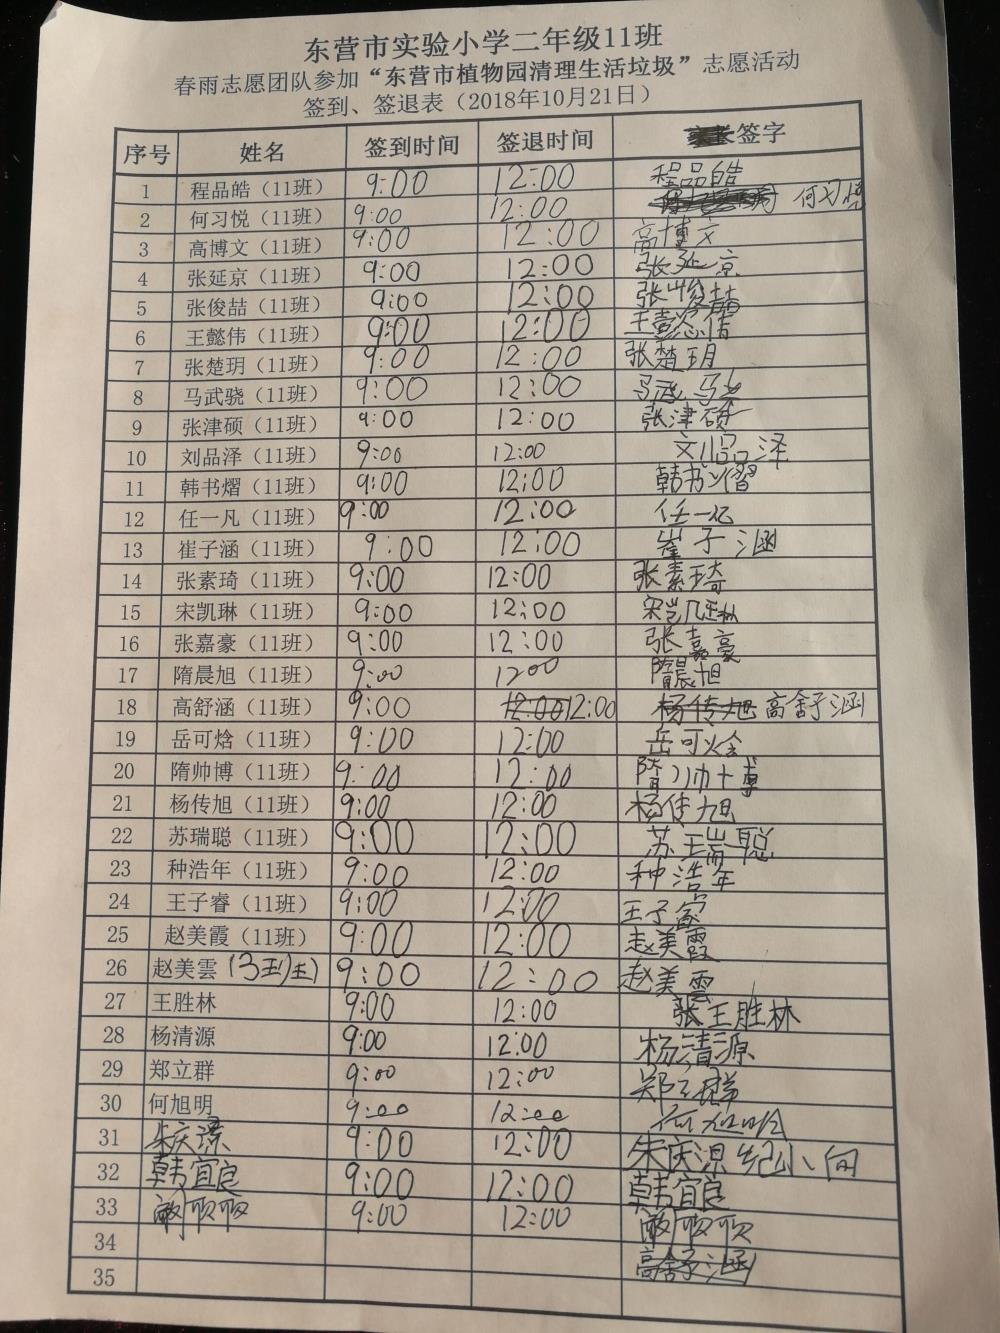 东营市实验小学二年级11班
春雨志愿团队参加“东营市植物园清理生活垃圾”志愿活动
签到、签退表（2018年10月21日）
序号 姓名 签到时间 签退时间 签字
1 程品皓（11班） 9:00 12:00 程品皓
2 何习悦（11班） 9:00 12:00 何习悦
3 高博文（11班） 9:00 12:00 高博文
4 张延京（11班） 9:00 12:00 张延京
5 张俊喆（11班） 9:00 12:00 张俊喆
6 王懿伟（11班） 9:00 12:00 王懿伟
7 张楚玥（11班） 9:00 12:00 张楚玥
8 马武骁（11班） 9:00 12:00 马武骁
9 张津硕（11班） 9:00 12:00 张津硕
10 刘品泽（11班） 9:00 12:00 刘品泽
11 韩书熠（11班） 9:00 12:00 韩书熠
12 任一凡（11班） 9:00 12:00 任一凡
13 崔子涵（11班） 9:00 12:00 崔子涵
14 张素琦（11班） 9:00 12:00 张素琦
15 宋凯琳（11班） 9:00 12:00 宋凯琳
16 张嘉豪（11班） 9:00 12:00 张嘉豪
17 隋晨旭（11班） 9:00 12:00 隋晨旭
18 高舒涵（11班） 9:00 12:00 12:00 杨传旭 高舒涵
19 岳可焓（11班） 9:00 12:00 岳可焓
20 隋帅博（11班） 9:00 12:00 隋帅博
21 杨传旭（11班） 9:00 12:00 杨传旭
22 苏瑞聪（11班） 9:00 12:00 苏瑞聪
23 种浩年（11班） 9:00 12:00 种浩年
24 王子睿（11班） 9:00 12:00 王子睿
25 赵美霞（11班） 9:00 12:00 赵美霞
26 赵美雲 9:00 12:00 赵美雲
27 王胜林 9:00 12:00 张王胜林
28 杨清源 9:00 12:00 杨清源
29 郑立群 9:00 12:00 郑立群
30 何旭明 9:00 12:00
31 9:00 12:00
32 韩宜良 9:00 12:00 韩宜良
33 9:00 12:00
34 高舒涵
35